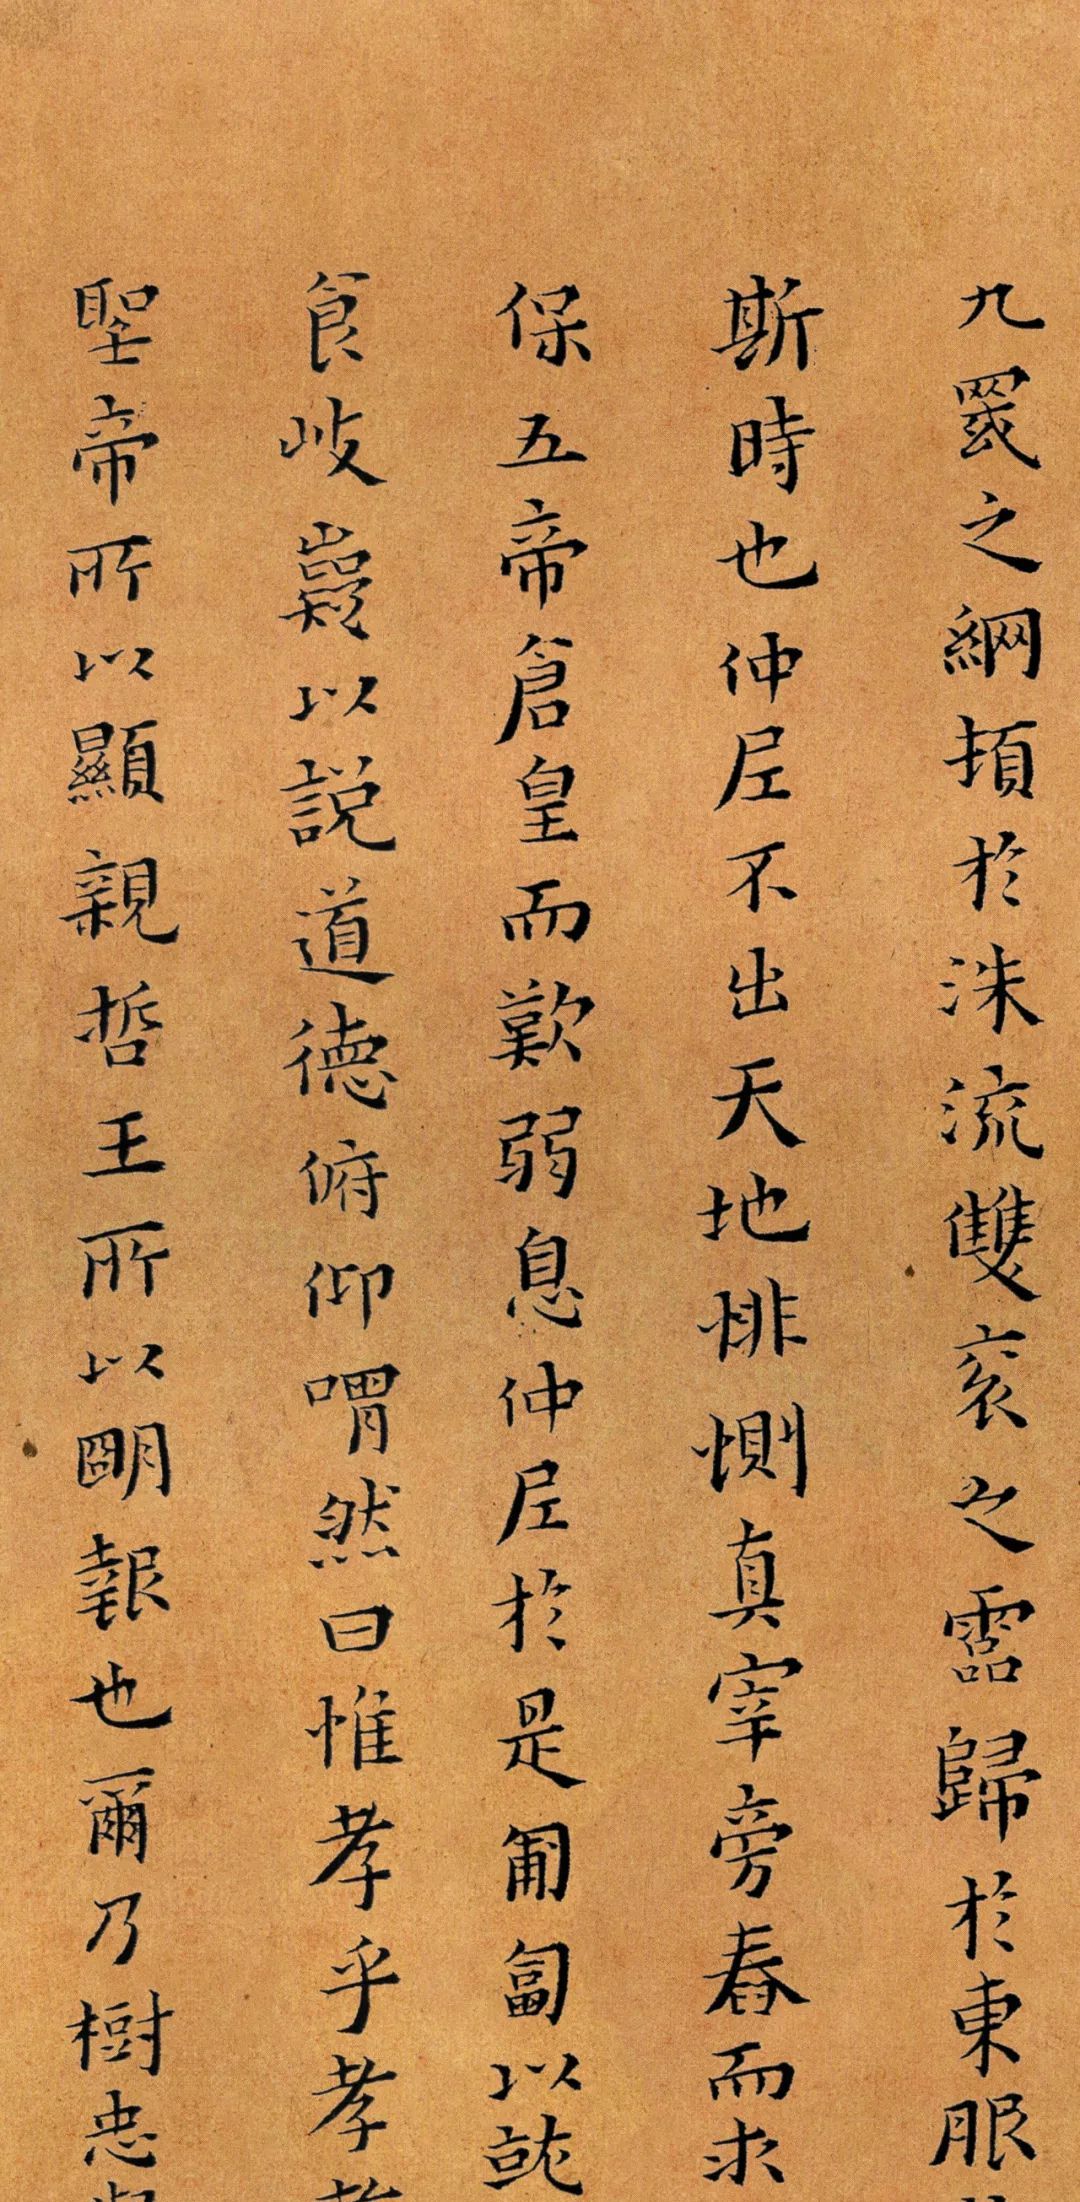 九罭之綱頓於洙流雙衮之靈歸於東服
斯時也仲尼不出天地悱惻真宰旁春而求
保五帝倉皇而歎弱息仲尼於是匍匐以就
食岐嶷以説道德俯仰喟然曰惟孝乎孝
聖帝所以顯親哲王所以明報也爾乃樹忠